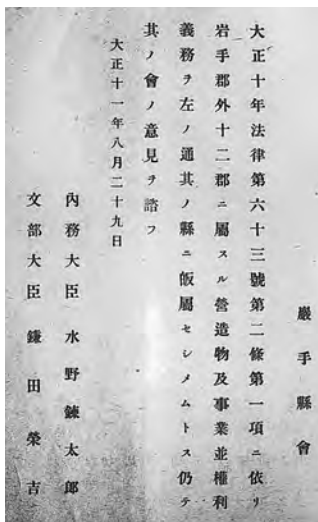 巖手縣會
大正十年法律第六十三號第二條第一項ニ依リ
岩手郡外十二郡ニ屬スル營造物及事業並權利
義務ヲ左ノ通其ノ縣ニ皈屬セシメムトス仍テ
其ノ會ノ意見ヲ諮フ
大正十一年八月二十九日
內務大臣 水野鍊太郎
文部大臣 鎌田榮吉